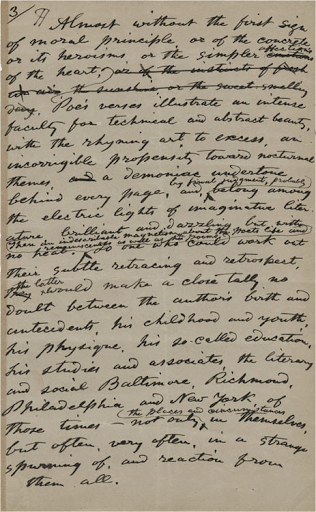 3/ ¶ Almost without the first sign
of moral principle or of the concrete
or its heroisms or the simpler affections
of the heart,
Poe's verses illustrate an intense
faculty for technical and abstract beauty,
with the rhyming art to excess, an
incorrigible propensity toward nocturnal
themes, a demoniac undertone
behind every page, and, by final judgment, probably
belong among
the electric lights of imaginative lite-
rature, brilliant and dazzling, but with
no heat. There is an indescribable magnetism about the poet's life and
reminiscences as well as the poems.
To one who could work out
their subtle retracing and retrospect,
the latter
would make a close tally no
doubt between the author's birth and
antecedents, his childhood and youth,
his physique, his so-called education,
his studies and associates, the literary
and social Baltimore, Richmond,
Philadelphia and New York, of
those times — not only
(the places and circumstances
in themselves,
but often, very often, in a strange
spurning of, and reaction from
them all.